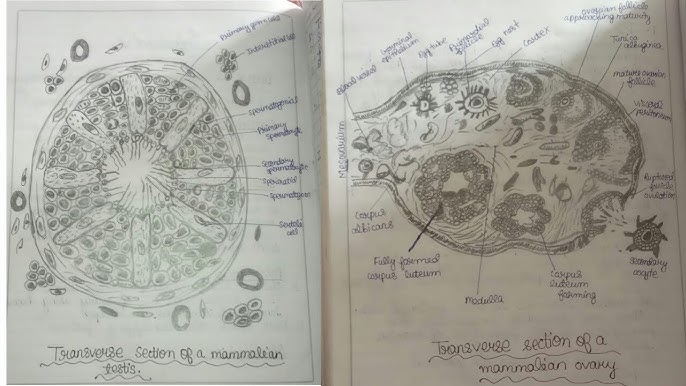 Primary germ cell
Interstitial cell
Spermatogonia
Primary
spermatocyte
Secondary
spermatocyte
Spermatid
spermatozoa
Sertoli
cell
Transverse section of a mammalian
testis.
ovarian follicle
approaching maturity
Tunica
albuginea
mature ovarian
follicle
visceral
peritoneum
Ruptured
follicle
ovulation
secondary
oocyte
Cortex
Egg nest
Primordial
follicle
Egg tube
Germinal
epithelium
Blood vessel
Mesovarium
Corpus
albicans
Fully formed
corpus luteum
medulla
Corpus
luteum
forming
Transverse section of a
mammalian ovary